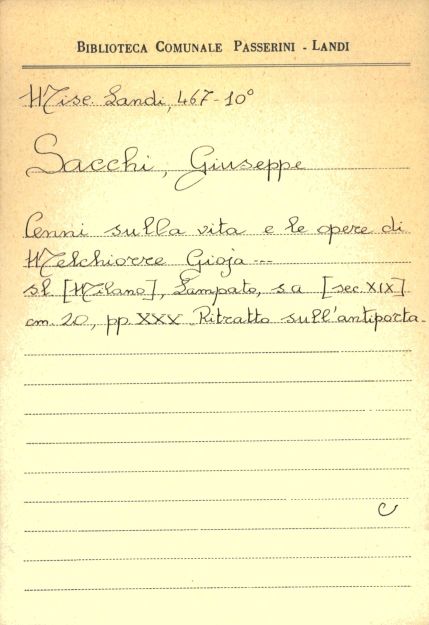 BIBLIOTECA COMUNALE PASSERINI - LANDI
Misc. Landi, 467-10°
Sacchi, Giuseppe
Cenni sulla vita e le opere di
Melchiorre Gioja ---
sl. [Milano], Lampato, s.a [sec. XIX]
cm. 20, pp. XXX. Ritratto sull'antiporta.
C